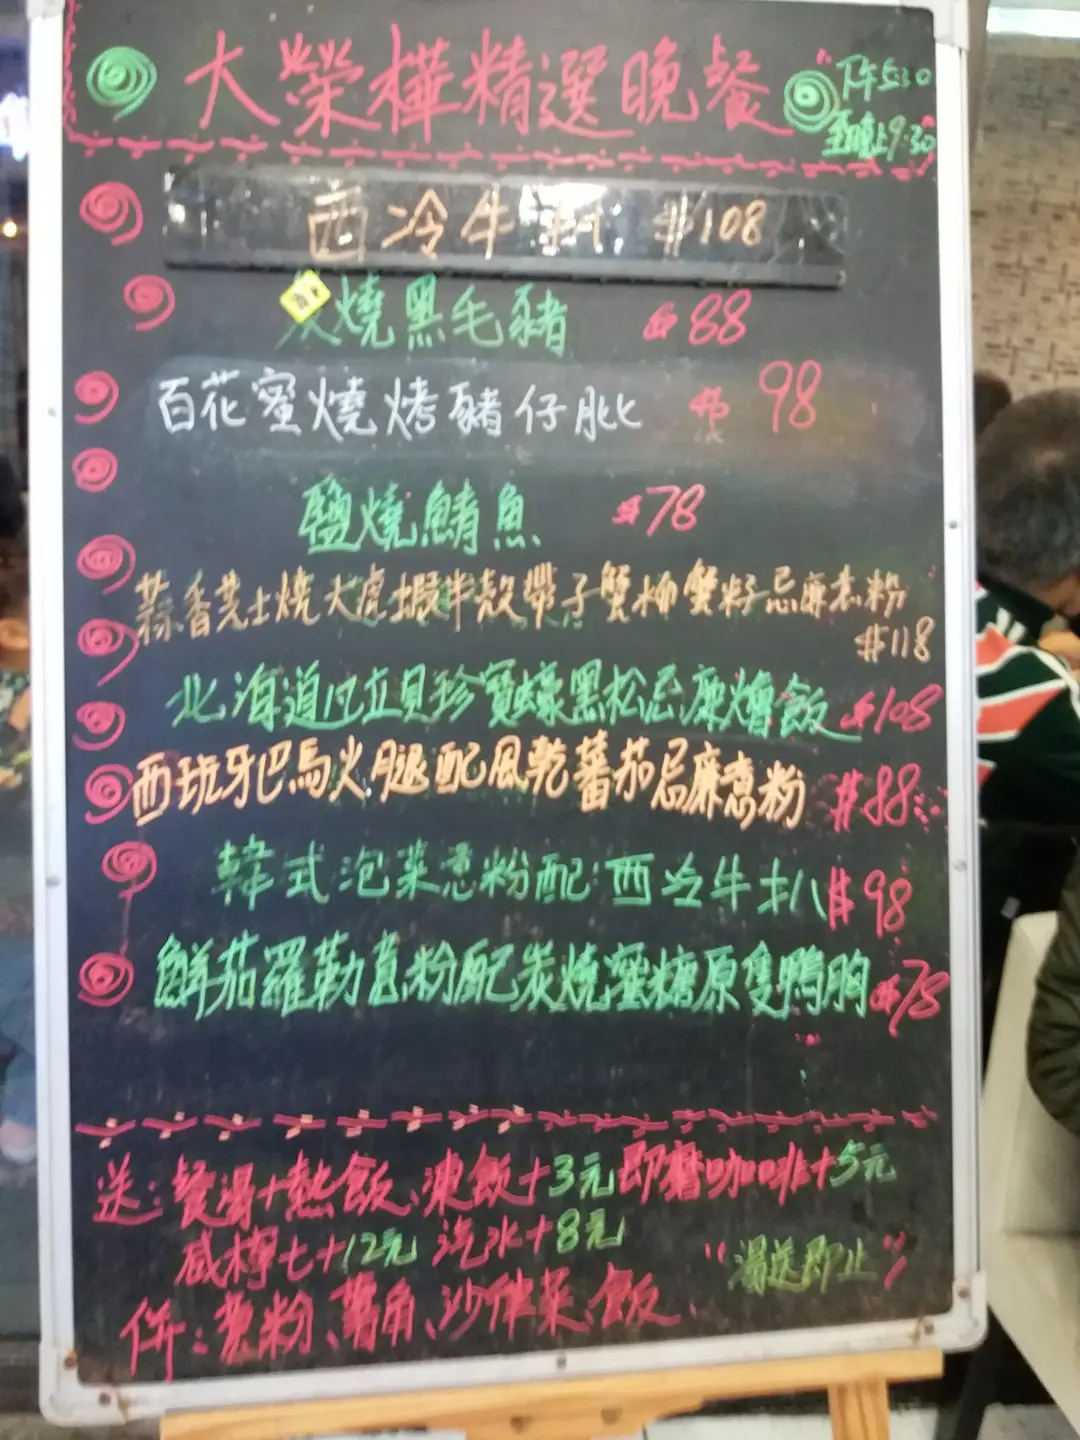 大榮樺精選晚餐
下午5:30
至晚上9:30
西冷牛扒 $108
炭燒黑毛豬 $88
百花蜜燒烤豬仔肶 $98
鹽燒鯖魚 $78
蒜香芝士燒大虎蝦半殼帶子蟹柳蟹籽忌廉意粉
$118
北海道帆立貝珍寶蠔黑松忌廉燴飯 $108
西班牙巴馬火腿配風乾蕃茄忌廉意粉 $88
韓式泡菜意粉配西冷牛扒 $98
鮮茄羅勒意粉配炭燒蜜糖原隻鴨胸 $78
送：餐湯+熱飲、凍飲+3元即磨咖啡+5元
咸檸七+12元 汽水+8元 "湯送即止"
併：意粉、薯角、沙律菜、飯